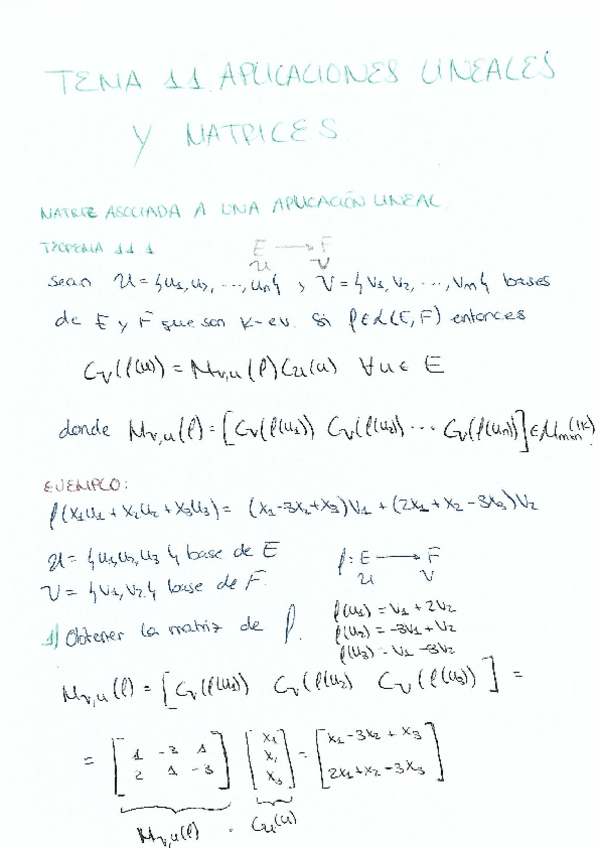 TEMA 11 APLICACIONES LINEALES
Y MATRICES
MATRIZ ASOCIADA A UNA APLICACIÓN LINEAL.
TEOREMA 11.1
E → F
U V
Sean U = {u1, u2, ..., un} y V = {v1, v2, ..., vm} bases
de E y F que son K-ev. Si f ∈ L(E, F) entonces
Cv(f(u)) = Mv,u(f) Cu(u) ∀u ∈ E
donde Mv,u(f) = [Cv(f(u1)) Cv(f(u2)) ... Cv(f(un))] ∈ Mmxn(K)
EJEMPLO:
f(x1u1 + x2u2 + x3u3) = (x1 - 3x2 + x3)v1 + (2x1 + x2 - 3x3)v2
U = {u1, u2, u3} base de E
V = {v1, v2} base de F.
f: E → F
U V
1) Obtener la matriz de f.
f(u1) = v1 + 2v2
f(u2) = -3v1 + v2
f(u3) = v1 - 3v2
Mv,u(f) = [Cv(f(u1)) Cv(f(u2) Cv(f(u3))] =
= [1 -3 1 [x1 = [x1 - 3x2 + x3
x2
2 1 -3] x3] 2x1 + x2 - 3x3]
Mv,u(f) · Cu(u)